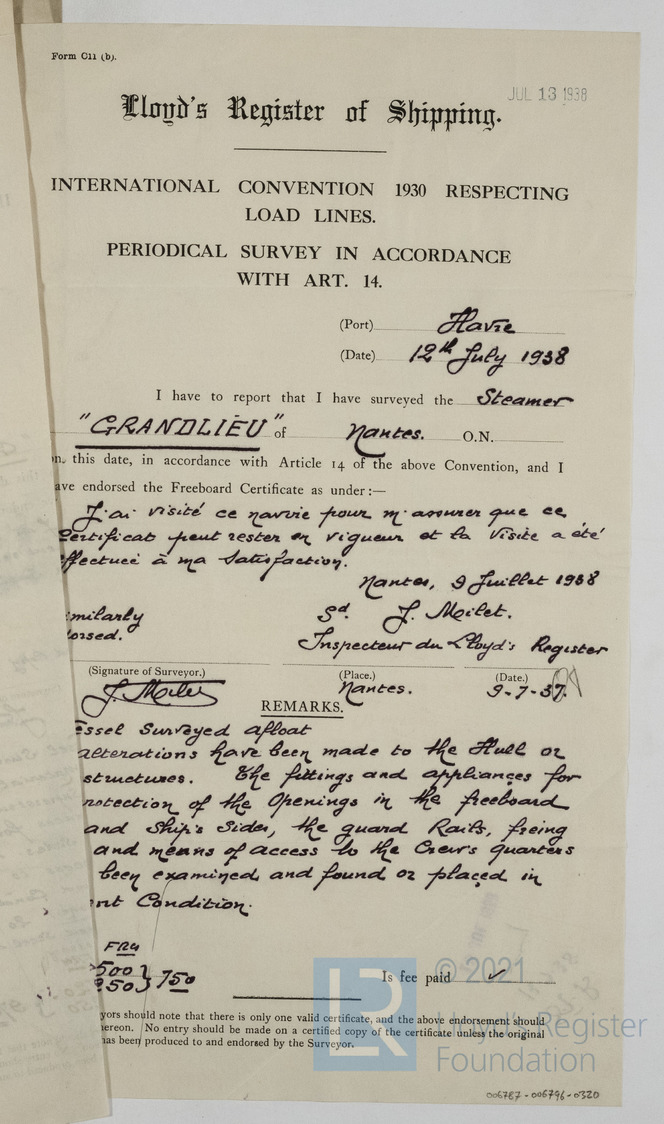 Form C11 (b).
JUL 13 1938
Lloyd's Register of Shipping.
INTERNATIONAL CONVENTION 1930 RESPECTING
LOAD LINES.
PERIODICAL SURVEY IN ACCORDANCE
WITH ART. 14.
(Port) Havre
(Date) 12th July 1938
I have to report that I have surveyed the Steamer
"GRANDLIEU" of Nantes. O.N.
on this date, in accordance with Article 14 of the above Convention, and I
ave endorsed the Freeboard Certificate as under:—
J'ai visité ce navire pour m'assurer que ce
Certificat peut rester en vigueur et la Visite a été
ffectuée à ma Satisfaction.
Nantes, 9 Juillet 1938
imilarly Sd. J. Meilet.
dorsed. Inspecteur du Lloyd's Register
(Signature of Surveyor.) (Place.) (Date.)
Nantes. 9-7-37.
REMARKS.
essel Surveyed afloat
alterations have been made to the Hull or
structures. The fittings and appliances for
rotection of the Openings in the freeboard
and Ship's Sides, the guard Rails, freing
and means of access to the Crew's quarters
been examined and found or placed in
ent Condition.
FRS
500 } 750
250
Is fee paid ✓
yors should note that there is only one valid certificate, and the above endorsement should
hereon. No entry should be made on a certified copy of the certificate unless the original
has been produced to and endorsed by the Surveyor.
LR © 2021
Lloyd's Register
Foundation
006787-006796-0320